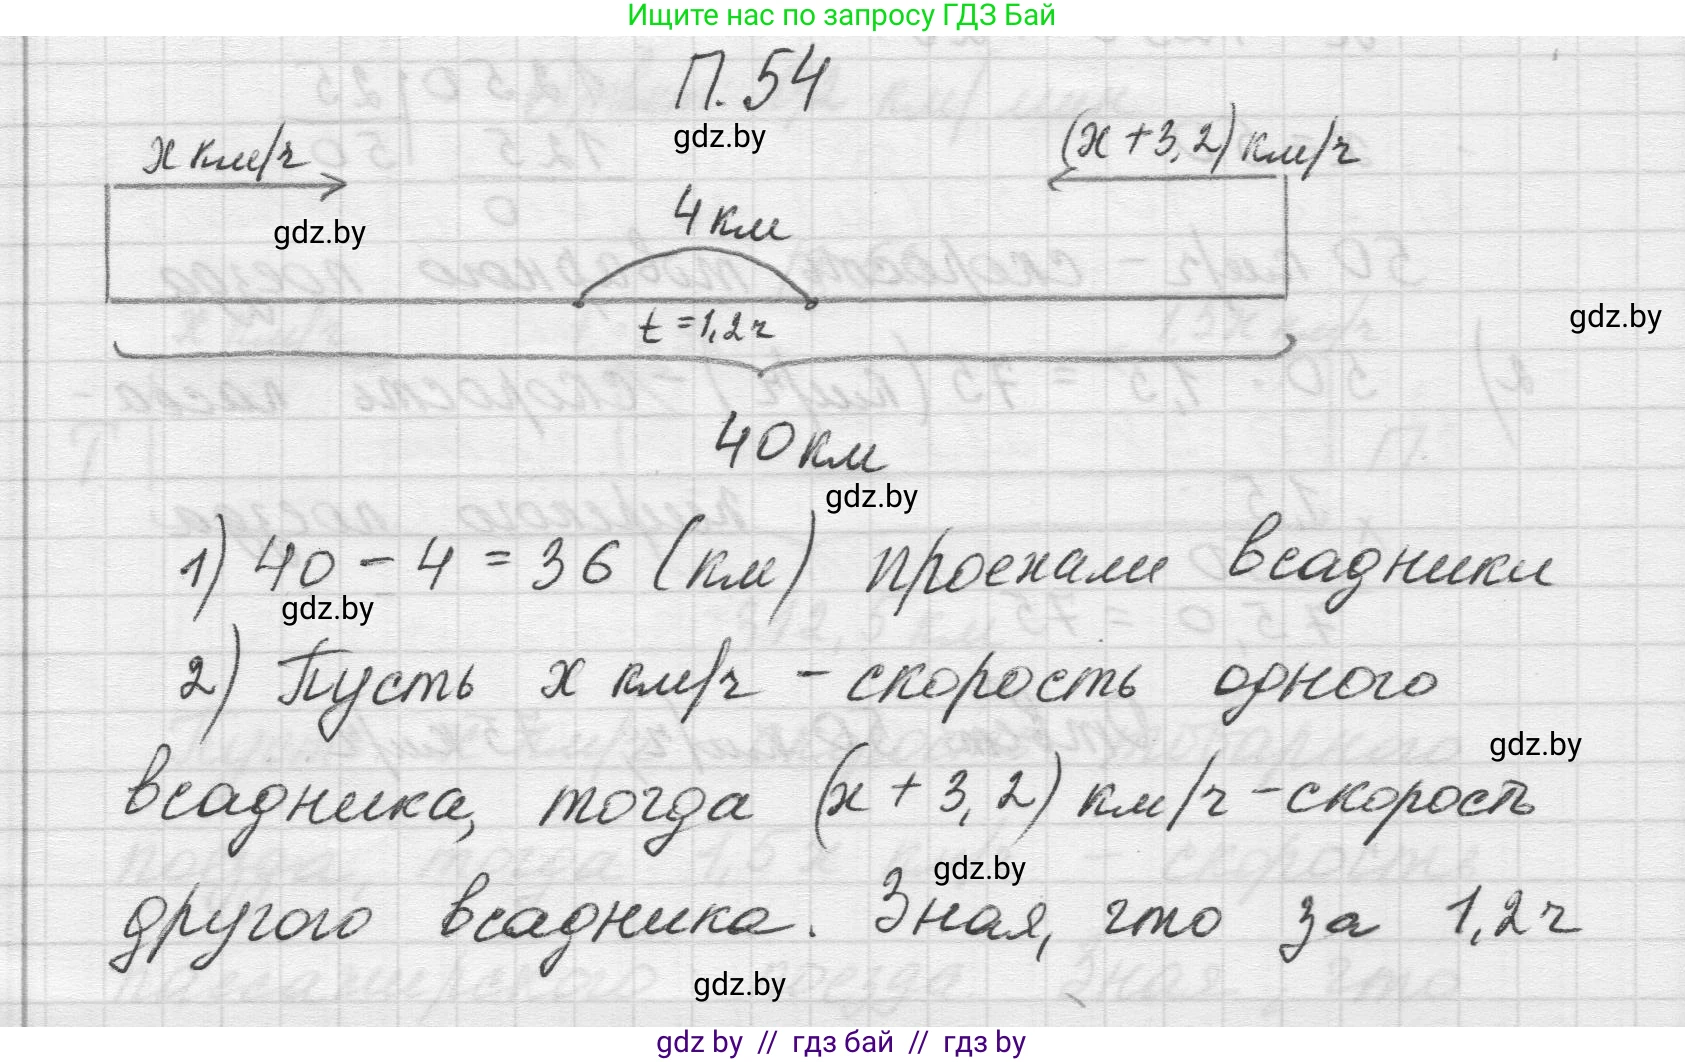 Ищите нас по запросу ГДЗ Бай
П.54
gdz.by
x км/ч
(x+3,2) км/ч
gdz.by
4 км
t=1,2ч
gdz.by
40 км
gdz.by
1) 40 - 4 = 36 (км) проехали всадники
gdz.by
2) Пусть x км/ч - скорость одного
gdz.by
всадника, тогда (x + 3,2) км/ч - скорость
gdz.by
другого всадника. Зная, что за 1,2ч
gdz.by
gdz by // гдз бай // gdz by